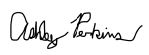 Ashley Perkins